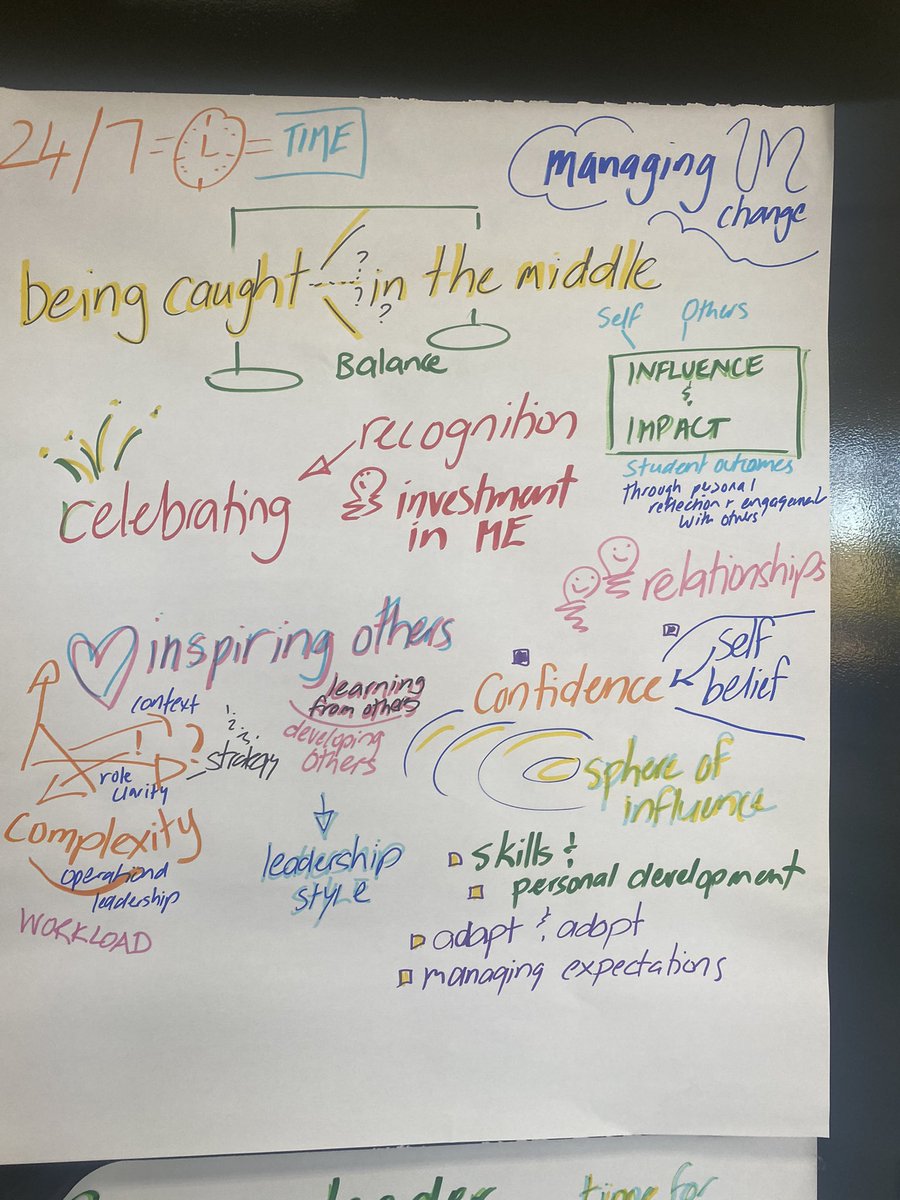 24/7 = = TIME
managing
change
being caught in the middle
? ? ?
Balance
Self Others
INFLUENCE
&
IMPACT
student outcomes
through personal
reflection + engagement
with others
recognition
celebrating
investment
in ME
relationships
inspiring others
self
belief
confidence
learning
from others
developing
others
context
1.
2.
3.
! ?
strategy
role
clarity
complexity
operational
leadership
WORKLOAD
leadership
style
sphere of
influence
skills &
personal development
adapt & adopt
managing expectations
leader time for